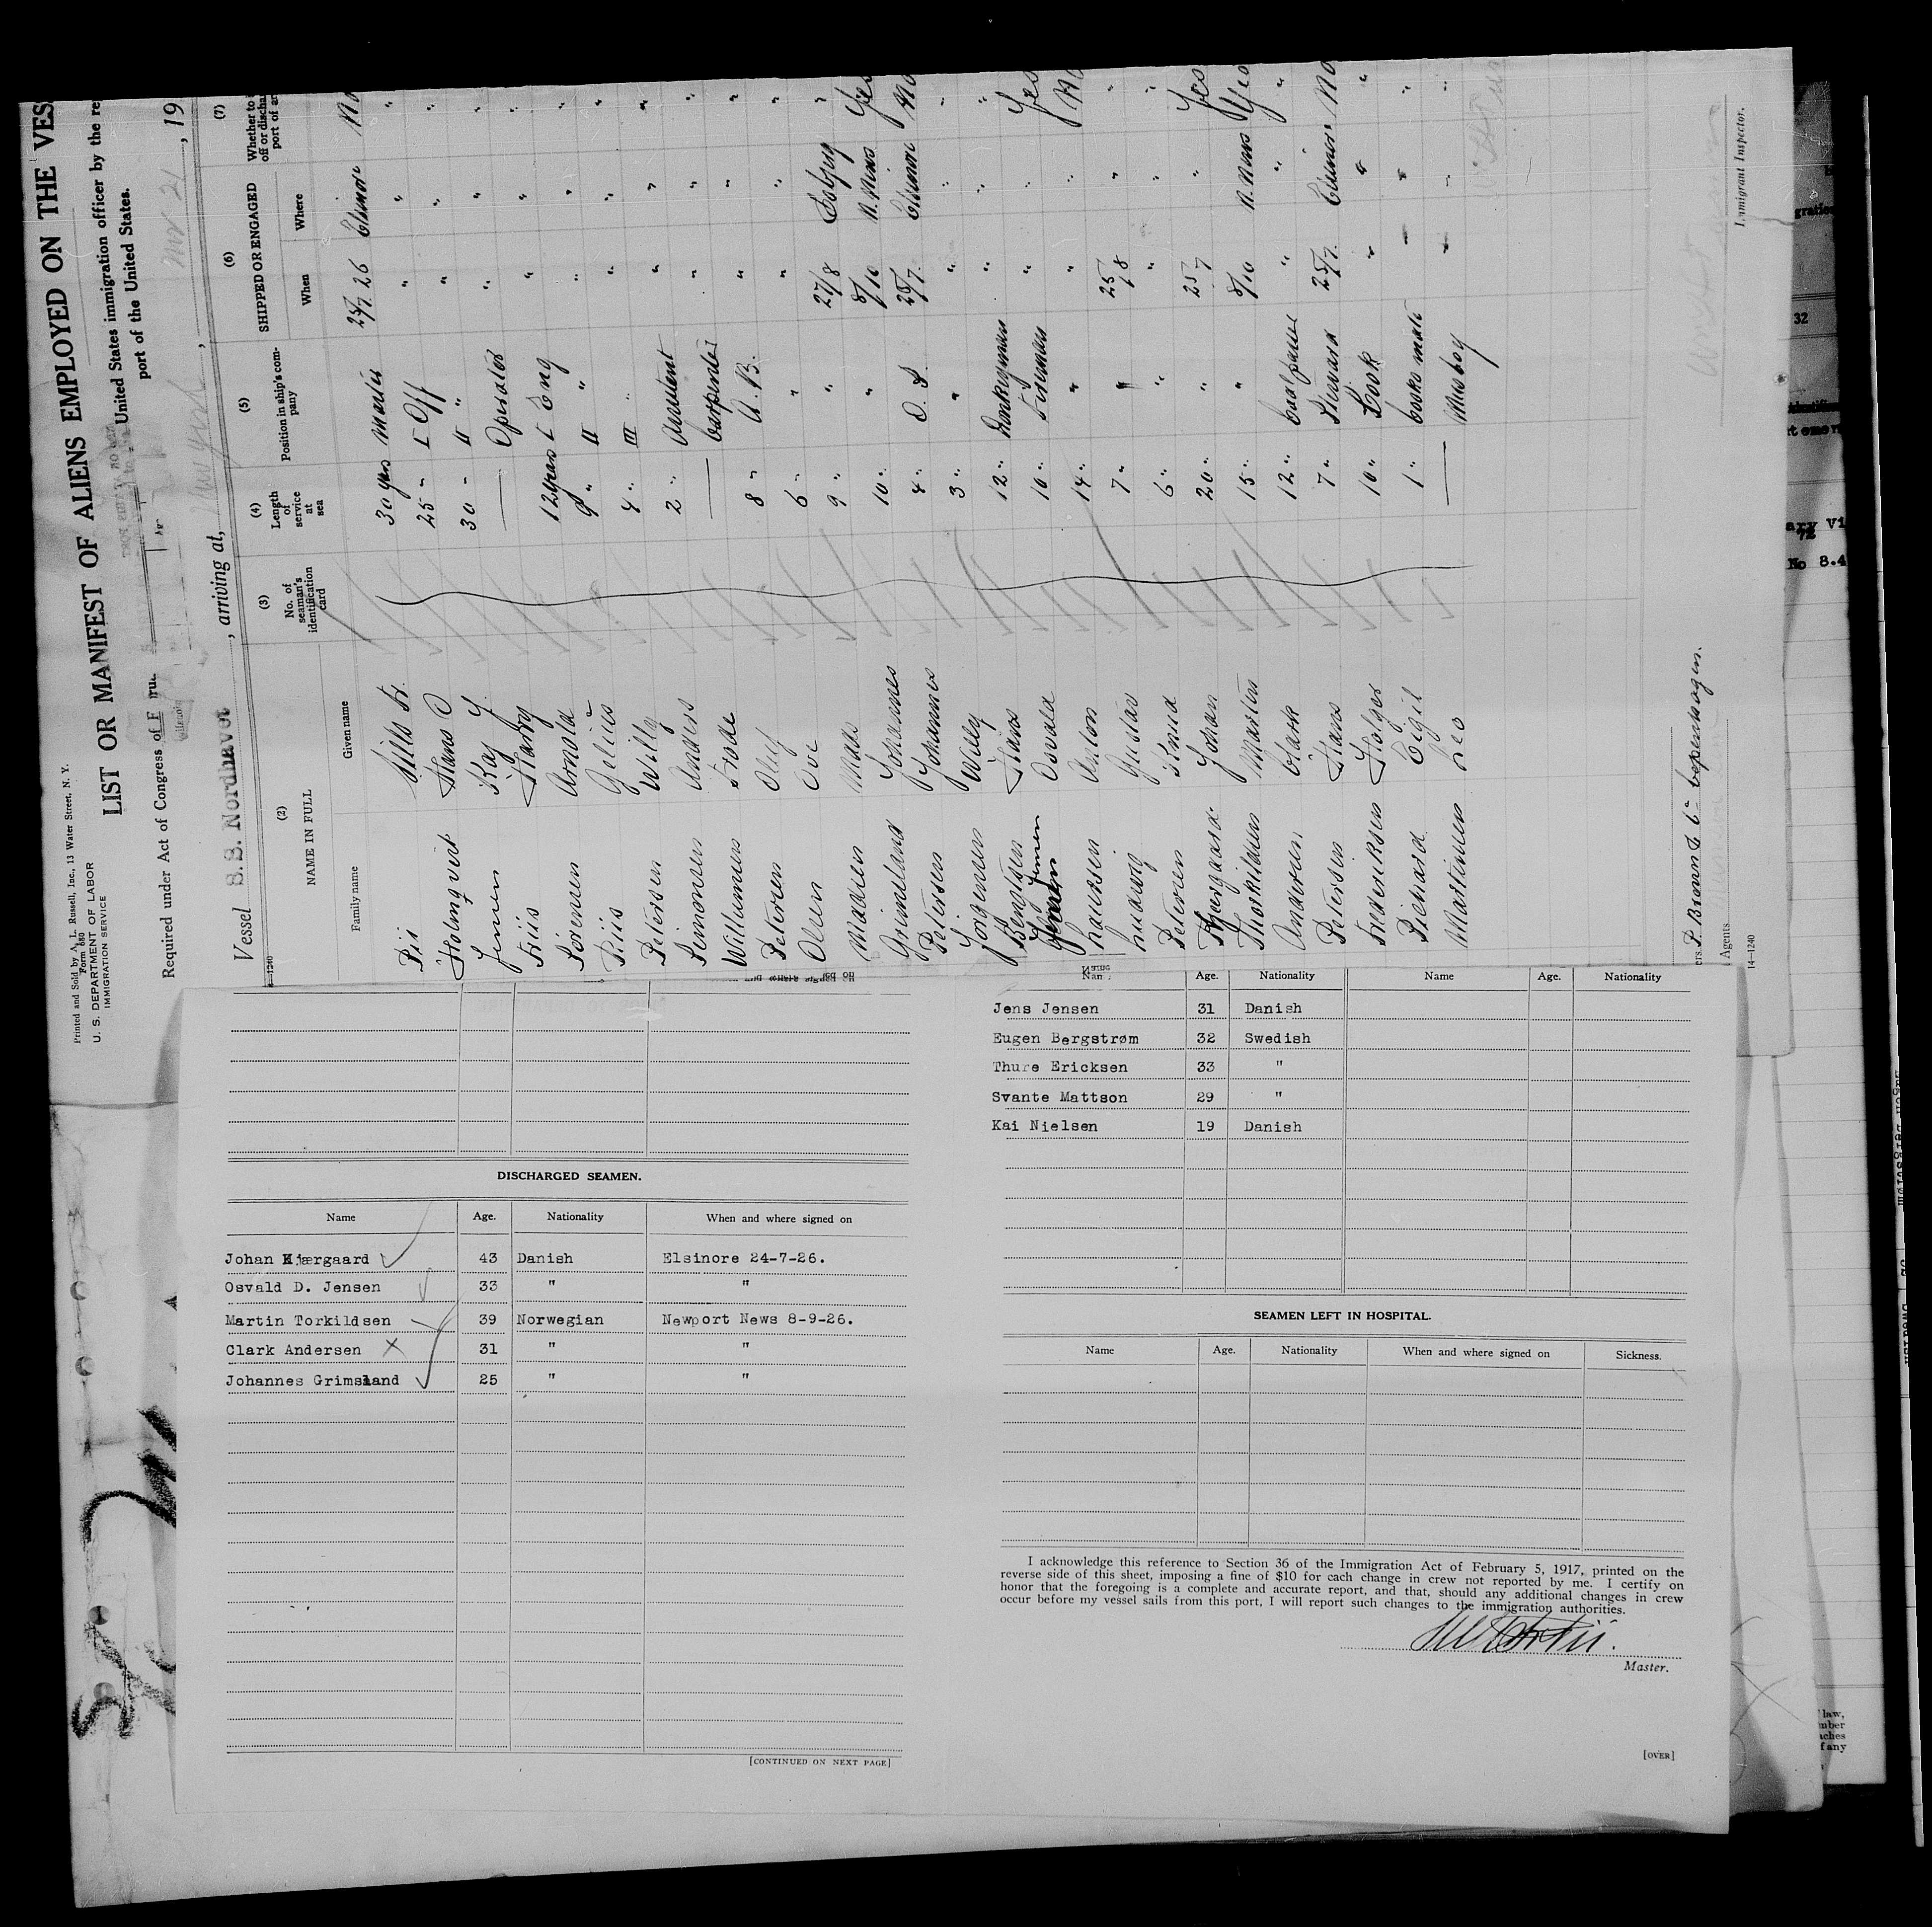 Printed and Sold by A. L. Russell, Inc., 13 Water Street, N. Y.
Form 680
U. S. DEPARTMENT OF LABOR
IMMIGRATION SERVICE
LIST OR MANIFEST OF ALIENS EMPLOYED ON THE VES
Required under Act of Congress of F
United States immigration officer by the re
port of the United States.
Vessel S.S. Nordhavet, arriving at, New York, Nov 21, 19
(2) (3) (4) (5) (6) (7)
NAME IN FULL
Family name Given name
No. of seaman's identification card
Length of service at sea
Position in ship's company
SHIPPED OR ENGAGED
When Where
Whether to
off or discha
port of ar
Holmqvist Hans 25 " I Off " "
Jensen Kay J. 30 " II " " "
Friis Harry — Operator " "
Sörensen Arnold 12 years I Eng " "
Friis 9 " II " " "
Petersen Willy 4 " III " " "
Simonsen Anders 2 " Assistent " "
Willumsen — Carpenter " "
Petersen Oluf 8 " A. B. " "
Olsen Ove 6 " " " "
Madsen 9 " " 27/8
Grimsland Johannes 10 " " 8/10 N. News Yes
Petersen Johannes 4 " O. S. 25/7. Elsinore No
Jörgensen Willy 3 " " " "
Bengtsen Hans 12 " Donkeyman " "
Jensen Osvald 10 " Fireman " " Yes
Anton 14 " " " " No
Ludwig Gustav 7 " " 25/8 "
Petersen Knud 6 " " " "
Kjærgaard Johan 20 " " 25/7 " Yes
Thorkildsen Martin 15 " " 8/10 N. News Yes
Andersen Clark 12 " " "
Petersen Hans 7 " Steward 25/7. Elsinore No
Frederiksen Holger 10 " Cook " "
Egil 1 " Cooks mate " "
Martinsen Leo — Messboy " "
Copenhagen.
Agents
14—1240
Immigrant Inspector.
DISCHARGED SEAMEN.
Name Age. Nationality When and where signed on
Johan Kjærgaard 43 Danish Elsinore 24-7-26.
Osvald D. Jensen 33 " "
Martin Torkildsen 39 Norwegian Newport News 8-9-26.
Clark Andersen 31 " "
Johannes Grimsland 25 " "
[CONTINUED ON NEXT PAGE]
Age. Nationality Name Age. Nationality
Jens Jensen 31 Danish
Eugen Bergstrøm 32 Swedish
Thure Ericksen 33 "
Svante Mattson 29 "
Kai Nielsen 19 Danish
SEAMEN LEFT IN HOSPITAL.
Name Age. Nationality When and where signed on Sickness.
I acknowledge this reference to Section 36 of the Immigration Act of February 5, 1917, printed on the
reverse side of this sheet, imposing a fine of $10 for each change in crew not reported by me. I certify on
honor that the foregoing is a complete and accurate report, and that, should any additional changes in crew
occur before my vessel sails from this port, I will report such changes to the immigration authorities.
Master.
[OVER]
32
No 8.4
law,